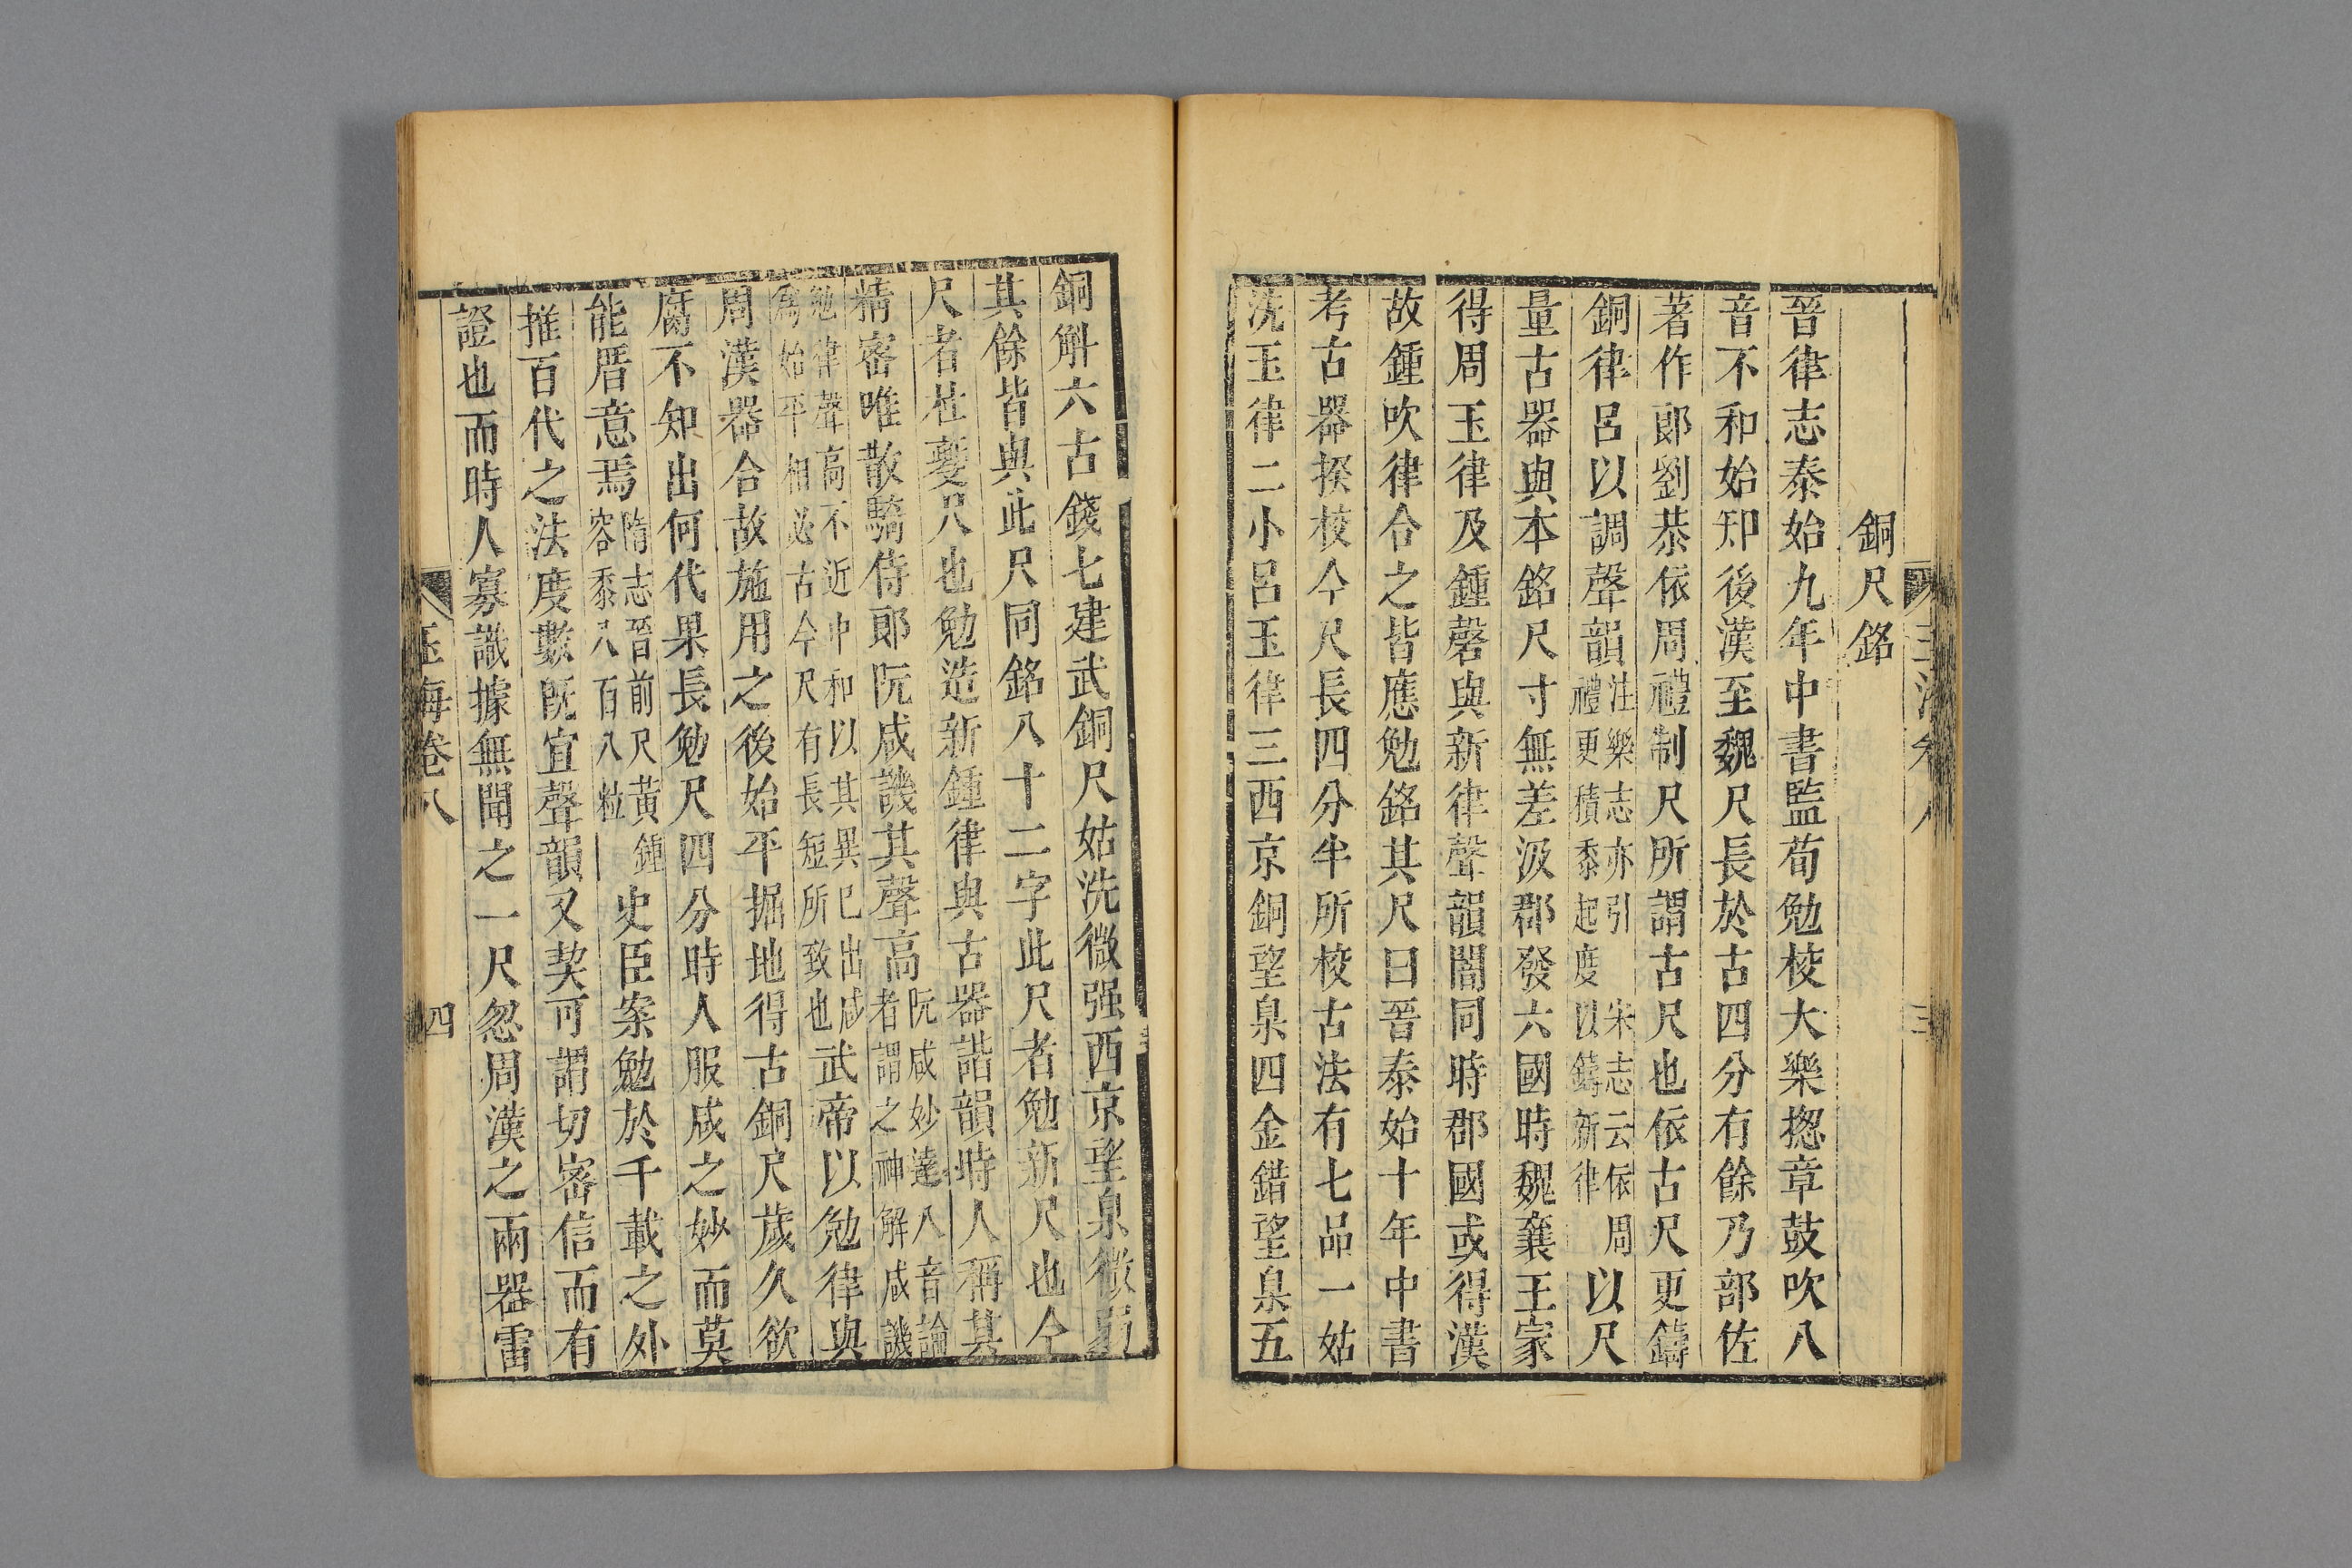 玉海卷八 三
銅尺銘
晉律志泰始九年中書監荀勉校大樂揔章鼓吹八
音不和始知後漢至魏尺長於古四分有餘乃部佐
著作郎劉恭依周禮制尺所謂古尺也依古尺更鑄
銅律呂以調聲韻注樂志亦引禮更積黍起度宋志云依周以鑄新律以尺
量古器與本銘尺寸無差汲郡發六國時魏襄王冢
得周玉律及鍾磬與新律聲韻闇同時郡國或得漢
故鍾吹律合之皆應勉銘其尺曰晉泰始十年中書
考古器揆校今尺長四分半所校古法有七品一姑
洗玉律二小呂玉律三西京銅望臬四金錯望臬五
銅斛六古錢七建武銅尺姑洗微强西京望臬微弱
其餘皆與此尺同銘八十二字此尺者勉新尺也今
尺者杜夔尺也勉造新鍾律與古器諧韻時人稱其
精密唯散騎侍郎阮咸譏其聲高阮咸妙達八音論者謂之神解咸譏
勉律聲高不近中和以其異已出咸爲始平相必古今尺有長短所致也武帝以勉律與
周漢器合故施用之後始平掘地得古銅尺歲久欲
腐不知出何代果長勉尺四分時人服咸之妙而莫
能厝意焉隋志晉前尺黃鍾容黍八百八粒史臣案勉於千載之外
推百代之法度數旣宜聲韻又契可謂切密信而有
證也而時人寡識據無聞之一尺忽周漢之兩器雷
玉海卷八 四